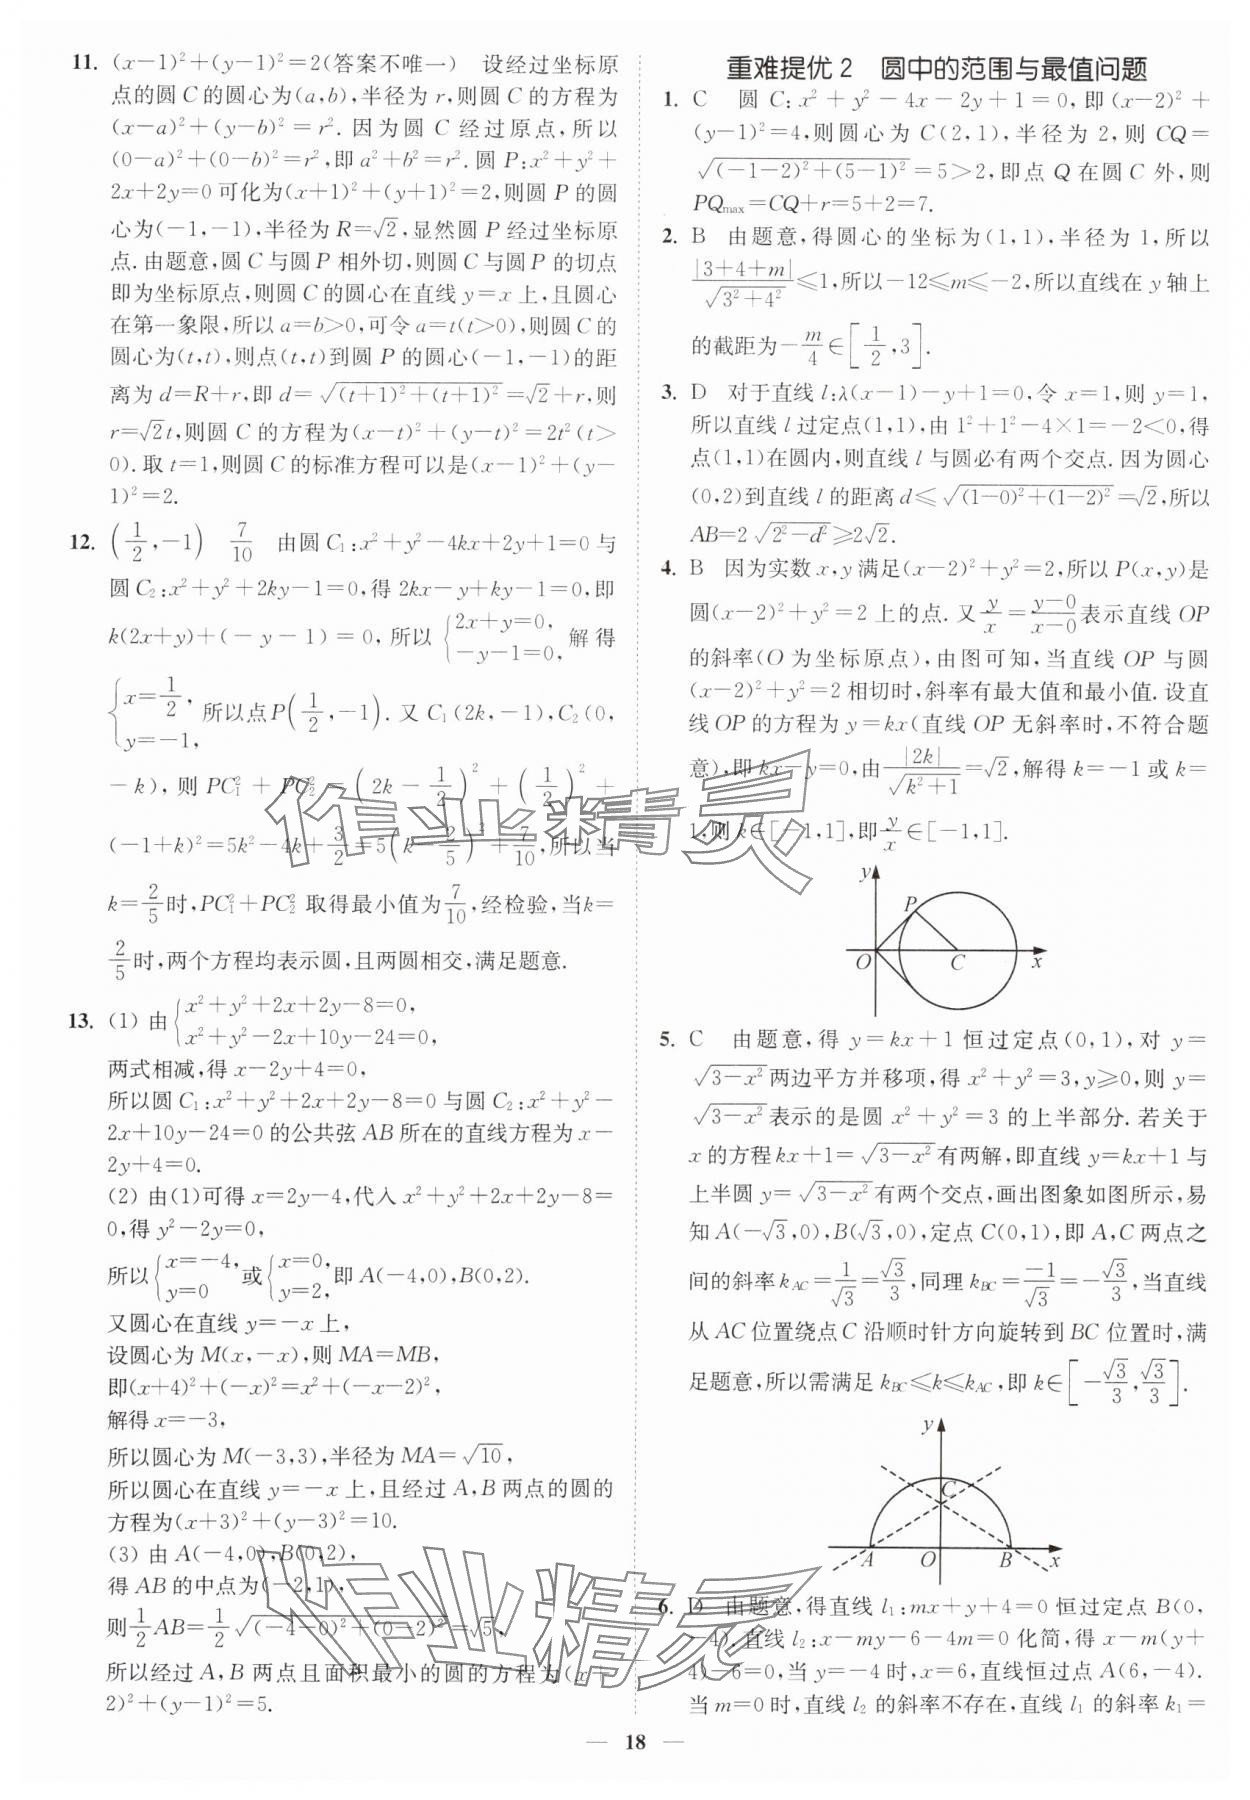 11. (x−1)²+(y−1)²=2(答案不唯一) 设经过坐标原
点的圆C的圆心为(a,b),半径为r,则圆C的方程为
(x−a)²+(y−b)²=r².因为圆C经过原点,所以
(0−a)²+(0−b)²=r²,即a²+b²=r².圆P:x²+y²+
2x+2y=0可化为(x+1)²+(y+1)²=2,则圆P的圆
心为(−1,−1),半径为R=√2,显然圆P经过坐标原
点.由题意,圆C与圆P相外切,则圆C与圆P的切点
即为坐标原点,则圆C的圆心在直线y=x上,且圆心
在第一象限,所以a=b>0,可令a=t(t>0),则圆C的
圆心为(t,t),则点(t,t)到圆P的圆心(−1,−1)的距
离为d=R+r,即d=√((t+1)²+(t+1)²)=√2+r,则
r=√2t,则圆C的方程为(x−t)²+(y−t)²=2t²(t>
0).取t=1,则圆C的标准方程可以是(x−1)²+(y−
1)²=2.
12. (1/2,−1) 7/10 由圆C₁:x²+y²−4kx+2y+1=0与
圆C₂:x²+y²+2ky−1=0,得2kx−y+ky−1=0,即
k(2x+y)+(−y−1)=0,所以{2x+y=0, −y−1=0,解得
{x=1/2, y=−1,所以点P(1/2,−1).又C₁(2k,−1),C₂(0,
−k),则PC₁²+PC₂²=(2k−1/2)²+(1/2)²+
(−1+k)²=5k²−4k+3/2=5(k−2/5)²+7/10,所以当
k=2/5时,PC₁²+PC₂²取得最小值为7/10,经检验,当k=
2/5时,两个方程均表示圆,且两圆相交,满足题意.
13. (1) 由{x²+y²+2x+2y−8=0, x²+y²−2x+10y−24=0,
两式相减,得x−2y+4=0,
所以圆C₁:x²+y²+2x+2y−8=0与圆C₂:x²+y²−
2x+10y−24=0的公共弦AB所在的直线方程为x−
2y+4=0.
(2) 由(1)可得x=2y−4,代入x²+y²+2x+2y−8=
0,得y²−2y=0,
所以{x=−4, y=0或{x=0, y=2,即A(−4,0),B(0,2).
又圆心在直线y=−x上,
设圆心为M(x,−x),则MA=MB,
即(x+4)²+(−x)²=x²+(−x−2)²,
解得x=−3,
所以圆心为M(−3,3),半径为MA=√10,
所以圆心在直线y=−x上,且经过A,B两点的圆的
方程为(x+3)²+(y−3)²=10.
(3) 由A(−4,0),B(0,2),
得AB的中点为(−2,1),
则1/2AB=1/2√((−4−0)²+(0−2)²)=√5,
所以经过A,B两点且面积最小的圆的方程为(x+
2)²+(y−1)²=5.
重难提优2 圆中的范围与最值问题
1. C 圆C:x²+y²−4x−2y+1=0,即(x−2)²+
(y−1)²=4,则圆心为C(2,1),半径为2,则CQ=
√((−1−2)²+(5−1)²)=5>2,即点Q在圆C外,则
PQmax=CQ+r=5+2=7.
2. B 由题意,得圆心的坐标为(1,1),半径为1,所以
|3+4+m|/√(3²+4²)≤1,所以−12≤m≤−2,所以直线在y轴上
的截距为−m/4∈[1/2,3].
3. D 对于直线l:λ(x−1)−y+1=0,令x=1,则y=1,
所以直线l过定点(1,1),由1²+1²−4×1=−2<0,得
点(1,1)在圆内,则直线l与圆必有两个交点.因为圆心
(0,2)到直线l的距离d≤√((1−0)²+(1−2)²)=√2,所以
AB=2√(2²−d²)≥2√2.
4. B 因为实数x,y满足(x−2)²+y²=2,所以P(x,y)是
圆(x−2)²+y²=2上的点.又y/x=(y−0)/(x−0)表示直线OP
的斜率(O为坐标原点),由图可知,当直线OP与圆
(x−2)²+y²=2相切时,斜率有最大值和最小值.设直
线OP的方程为y=kx(直线OP无斜率时,不符合题
意),即kx−y=0,由|2k|/√(k²+1)=√2,解得k=−1或k=
1,则k∈[−1,1],即y/x∈[−1,1].
y
P
O C x
5. C 由题意,得y=kx+1恒过定点(0,1),对y=
√(3−x²)两边平方并移项,得x²+y²=3,y≥0,则y=
√(3−x²)表示的是圆x²+y²=3的上半部分.若关于
x的方程kx+1=√(3−x²)有两解,即直线y=kx+1与
上半圆y=√(3−x²)有两个交点,画出图象如图所示,易
知A(−√3,0),B(√3,0),定点C(0,1),即A,C两点之
间的斜率k_AC=1/√3=√3/3,同理k_BC=−1/√3=−√3/3,当直线
从AC位置绕点C沿顺时针方向旋转到BC位置时,满
足题意,所以需满足k_BC≤k≤k_AC,即k∈[−√3/3,√3/3].
y
C
A O B x
6. D 由题意,得直线l₁:mx+y+4=0恒过定点B(0,
−4).直线l₂:x−my−6−4m=0化简,得x−m(y+
4)−6=0,当y=−4时,x=6,直线恒过点A(6,−4).
当m=0时,直线l₂的斜率不存在,直线l₁的斜率k₁=
— 18 —
作业精灵
作业精灵